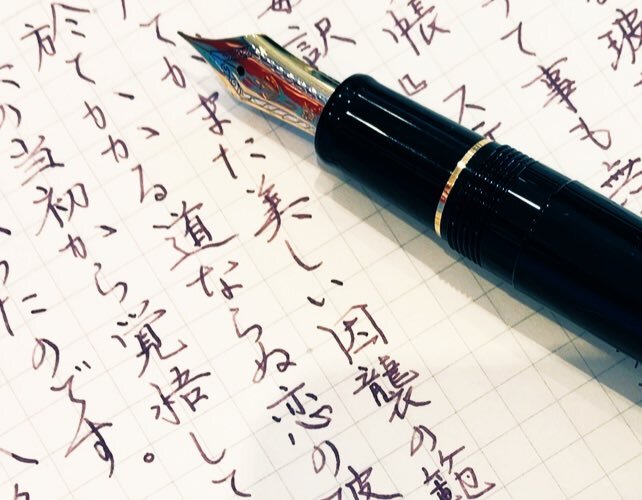 玻
て事も無
帳ロス
訳
てかまた美しい因襲の
於てかかる道ならぬ恋の
の当初から覚悟して
たのです。